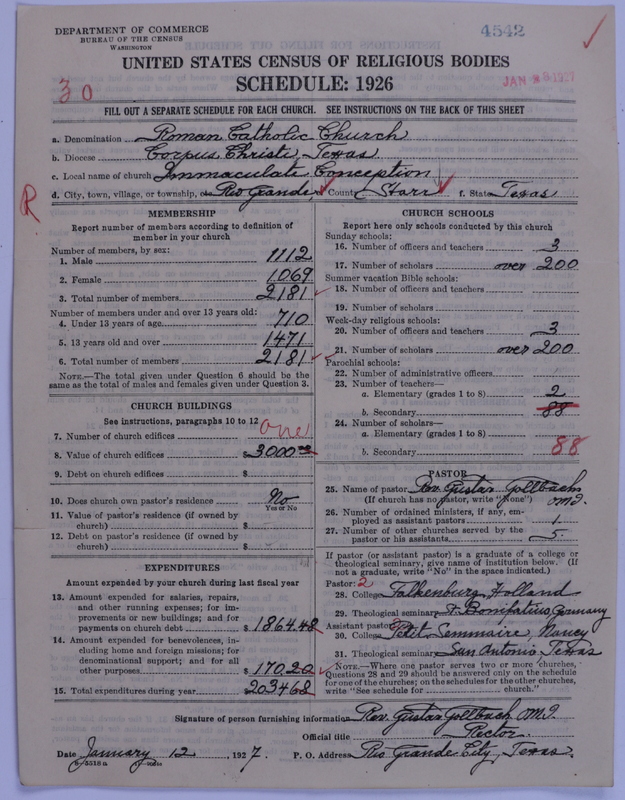 DEPARTMENT OF COMMERCE
BUREAU OF THE CENSUS
WASHINGTON
4542
UNITED STATES CENSUS OF RELIGIOUS BODIES
SCHEDULE: 1926
30
FILL OUT A SEPARATE SCHEDULE FOR EACH CHURCH. SEE INSTRUCTIONS ON THE BACK OF THIS SHEET
a. Denomination Roman Catholic Church
b. Diocese Corpus Christi, Texas
c. Local name of church Immaculate Conception
d. City, town, village, or township, Rio Grande County Starr f. State Texas
R
MEMBERSHIP
Report number of members according to definition of
member in your church
Number of members, by sex:
1. Male 1112
2. Female 1069
3. Total number of members 2181
Number of members under and over 13 years old:
4. Under 13 years of age 710
5. 13 years old and over 1471
6. Total number of members 2181
NOTE.—The total given under Question 6 should be the
same as the total of males and females given under Question 3.
CHURCH BUILDINGS
See instructions, paragraphs 10 to 12
7. Number of church edifices one
8. Value of church edifices $3000
9. Debt on church edifices $
10. Does church own pastor's residence No
Yes or No
11. Value of pastor's residence (if owned by
church) $
12. Debt on pastor's residence (if owned by
church) $
EXPENDITURES
Amount expended by your church during last fiscal year
13. Amount expended for salaries, repairs,
and other running expenses; for im-
provements or new buildings; and for
payments on church debt $1864.48
14. Amount expended for benevolences, in-
cluding home and foreign missions; for
denominational support; and for all
other purposes $170.20
15. Total expenditures during year $203468
CHURCH SCHOOLS
Report here only schools conducted by this church
Sunday schools:
16. Number of officers and teachers 3
17. Number of scholars over 200
Summer vacation Bible schools:
18. Number of officers and teachers
19. Number of scholars
Week-day religious schools:
20. Number of officers and teachers 3
21. Number of scholars over 200
Parochial schools:
22. Number of administrative officers
23. Number of teachers—
a. Elementary (grades 1 to 8) 2
b. Secondary 88
24. Number of scholars—
a. Elementary (grades 1 to 8)
b. Secondary 88
PASTOR
25. Name of pastor Rev. Gustav Gollbach
(If church has no pastor, write "None") OMI.
26. Number of ordained ministers, if any, em-
ployed as assistant pastors 1
27. Number of other churches served by the
pastor or his assistants 5
If pastor (or assistant pastor) is a graduate of a college or
theological seminary, give name of institution below. (If
not a graduate, write "No" in the space indicated.)
Pastor: 2
28. College Falkenburg, Holland
29. Theological seminary St. Bonifatius, Germany
Assistant pastor:
30. College Petit Seminaire, Nancy
31. Theological seminary San Antonio, Texas
NOTE.—Where one pastor serves two or more churches,
Questions 28 and 29 should be answered only on the schedule
for one of the churches; on the schedules for the other churches,
write "See schedule for church."
Signature of person furnishing information Rev. Gustav Gollbach OMI.
Official title Rector
Date January 12, 1927. P. O. Address Rio Grande City, Texas.